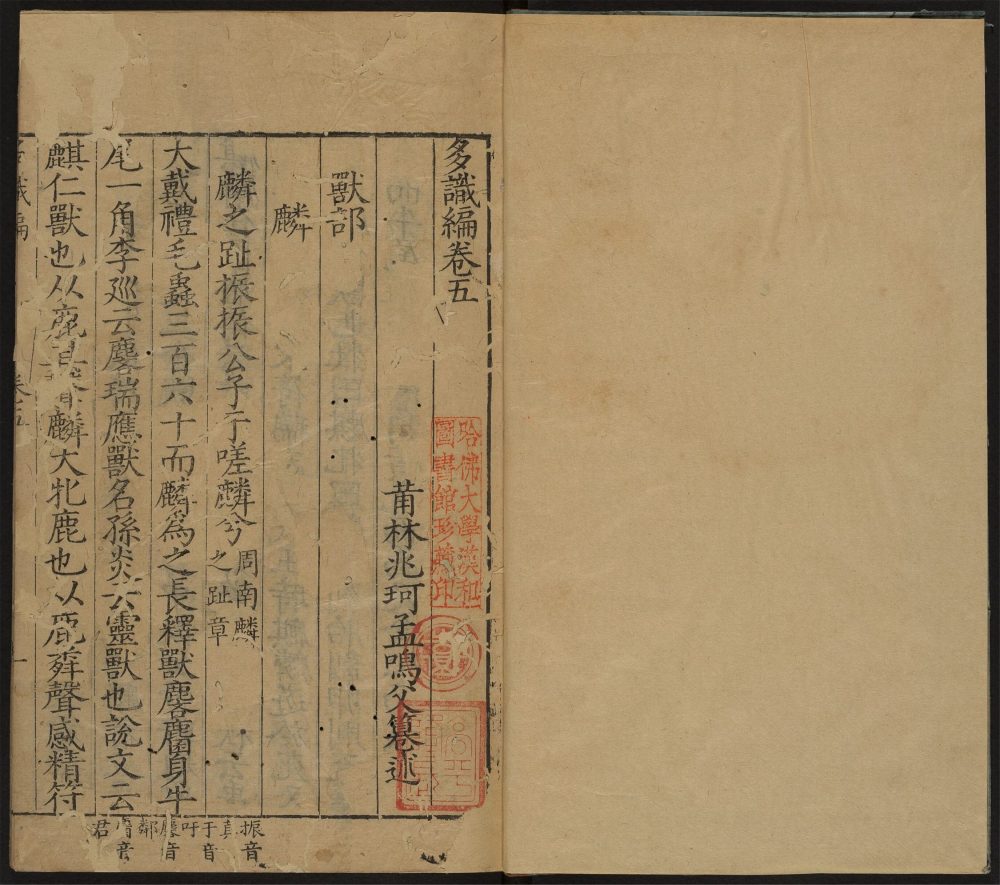 多識編卷五
莆林兆珂孟鳴父纂述
獸部
麟
麟之趾振振公子于嗟麟兮周南麟之趾章
大戴禮毛蟲三百六十而麟為之長釋獸麐麕身牛
尾一角李巡云麐瑞應獸名孫炎云靈獸也說文云
麒仁獸也从鹿其聲麟大牝鹿也从鹿粦聲感精符
振音真
于音吁
麐音鄰
麕音君
識編
卷五
一
哈佛大學漢和
圖書館珍藏印